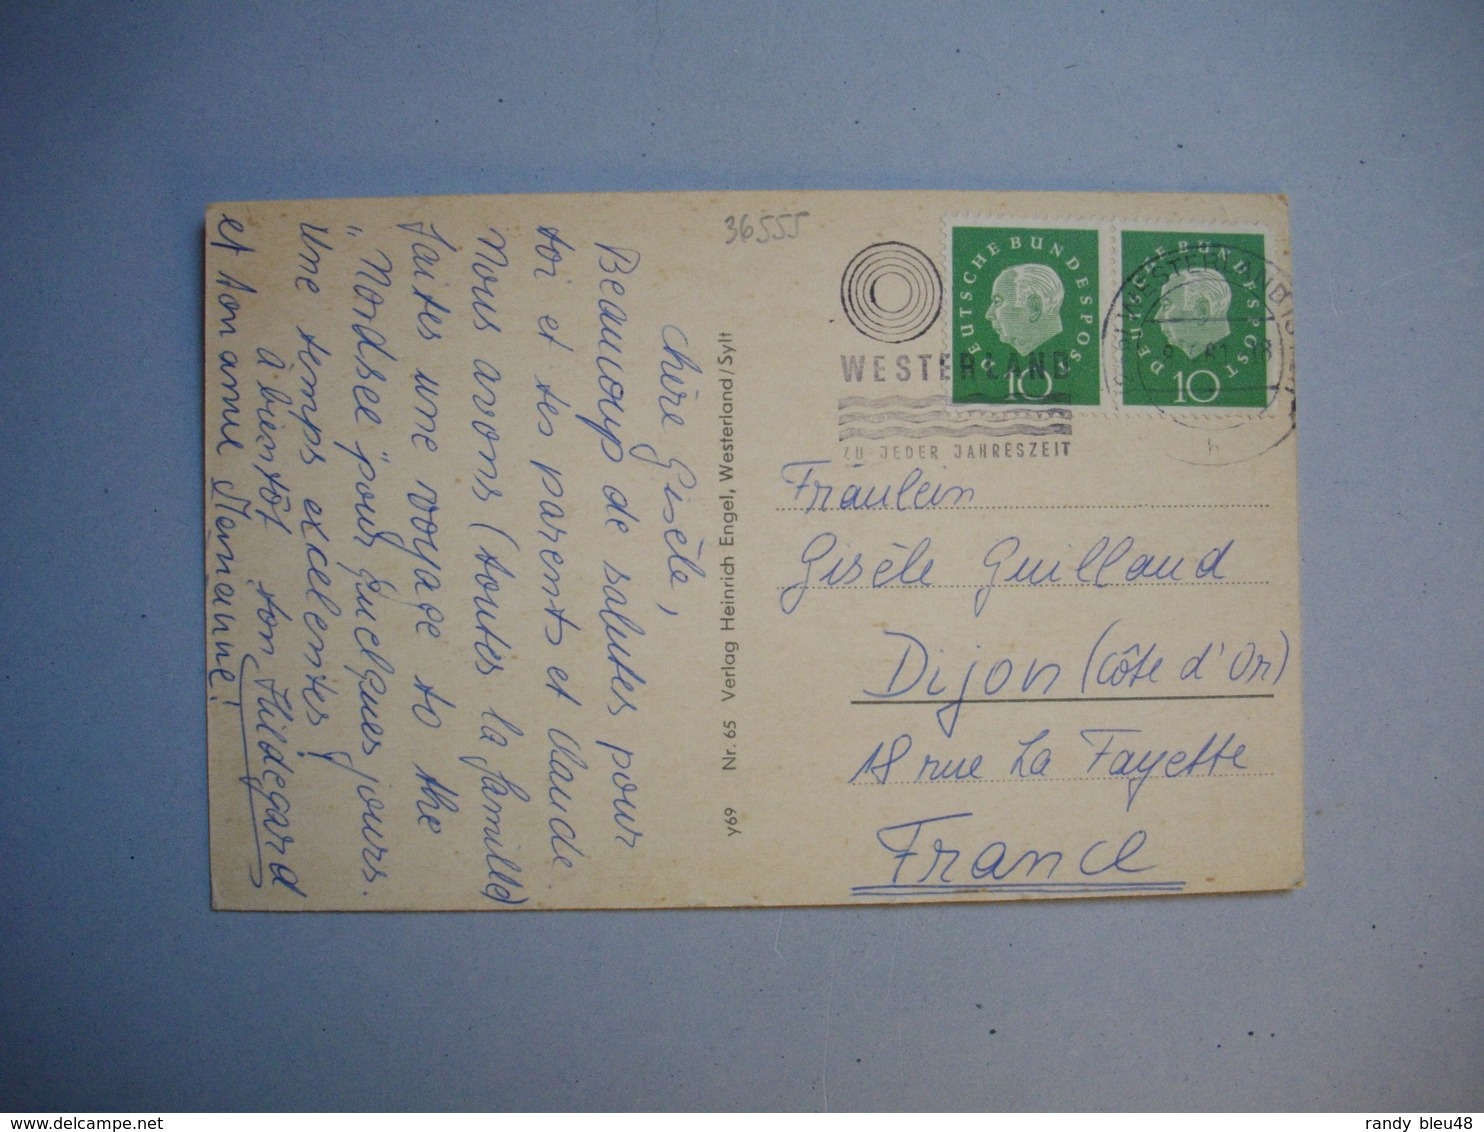 36555
WESTERLAND
ZU JEDER JAHRESZEIT
DEUTSCHE BUNDESPOST
10
DEUTSCHE BUNDESPOST
10
WESTERLAND
61.-18
h
Fräulein
Gisèle Guilland
Dijon (Côte d'Or)
18 rue La Fayette
France
y69 Nr. 65 Verlag Heinrich Engel, Westerland/Sylt
Chère Gisèle,
Beaucoup de salutes pour
toi et tes parents et Claude.
Nous avons (toutes la famille)
faites une voyage to the
„Nordsee" pour quelques jours.
Une temps excelentes!
à bientôt ton Hildegard
et ton amie
randy bleu48